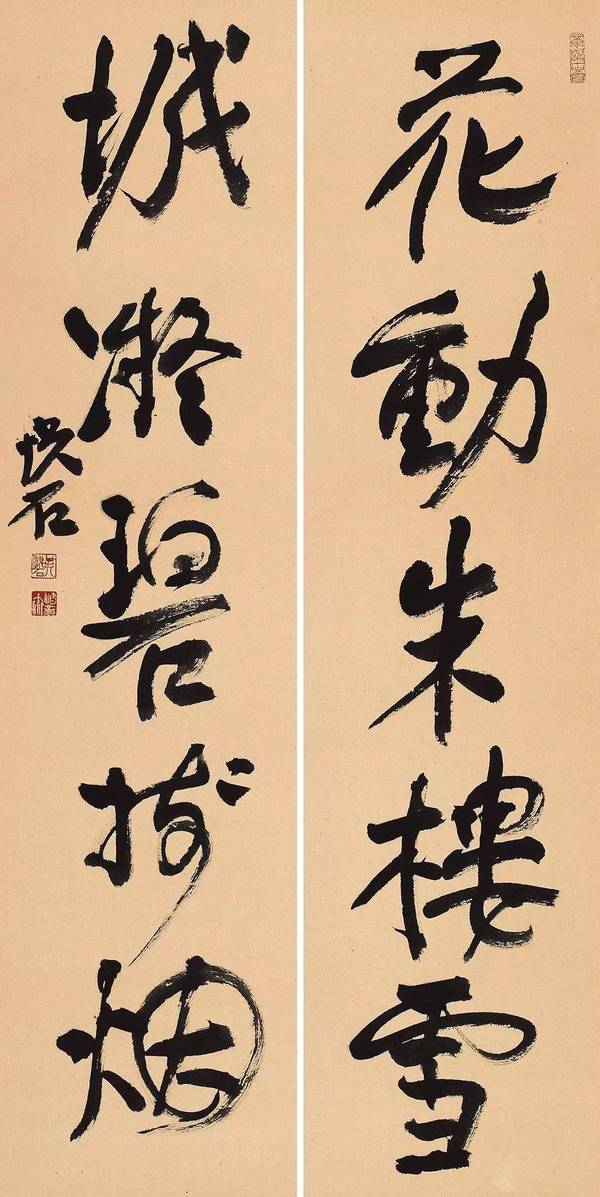 花動朱樓雪
城凝碧樹烟